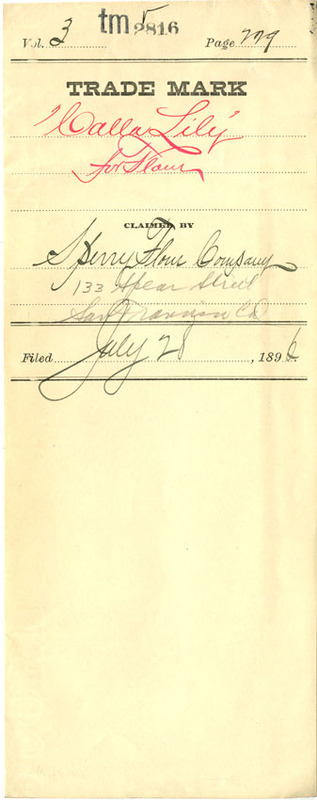 tm 5
2816
Vol. 3 Page 229
TRADE MARK
"Calla Lily"
for Flour
CLAIMED BY
Sperry Flour Company
133 Spear Street
San Francisco Ca
Filed July 28, 1896.